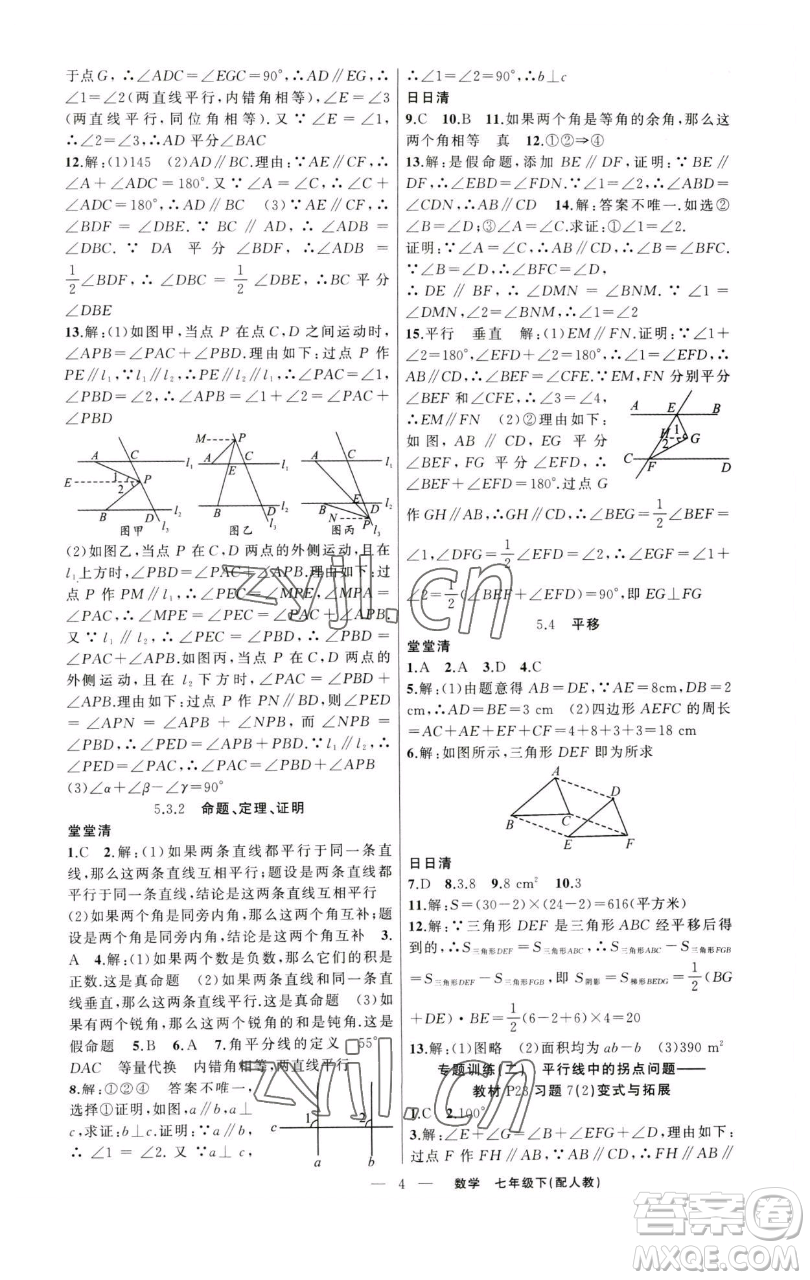 于点G,∴∠ADC=∠EGC=90°,∴AD∥EG,∴
∠1=∠2(两直线平行,内错角相等),∠E=∠3
(两直线平行,同位角相等).又∵∠E=∠1,
∴∠2=∠3,∴AD平分∠BAC
12.解:(1)145 (2)AD∥BC.理由:∵AE∥CF,∴
∠A+∠ADC=180°.又∵∠A=∠C,∴∠C+
∠ADC=180°,∴AD∥BC (3)∵AE∥CF,∴
∠BDF=∠DBE.∵BC∥AD,∴∠ADB=
∠DBC.∵DA平分∠BDF,∴∠ADB=
1/2∠BDF,∴∠DBC=1/2∠DBE,∴BC平分
∠DBE
13.解:(1)如图甲,当点P在C,D之间运动时,
∠APB=∠PAC+∠PBD.理由如下:过点P作
PE∥l₁,∵l₁∥l₂,∴PE∥l₂∥l₁,∴∠PAC=∠1,
∠PBD=∠2,∴∠APB=∠1+∠2=∠PAC+
∠PBD
A C l₁
E 1 2 P
B D l₂
l₃
图甲
M P
A C l₁
E
B D l₂
l₃
图乙
A C l₁
E
B D l₂
N P
l₃
图丙
(2)如图乙,当点P在C,D两点的外侧运动,且在
l₁上方时,∠PBD=∠PAC+∠APB.理由如下:过
点P作PM∥l₁,∴∠PEC=∠MPE,∠MPA=
∠PAC,∴∠MPE=∠PEC=∠PAC+∠APB.
∵l₁∥l₂,∴∠PEC=∠PBD,∴∠PBD=
∠PAC+∠APB;如图丙,当点P在C,D两点的
外侧运动,且在l₂下方时,∠PAC=∠PBD+
∠APB.理由如下:过点P作PN∥BD,则∠PED
=∠APN=∠APB+∠NPB,而∠NPB=
∠PBD,∴∠PED=∠APB+∠PBD.∵l₁∥l₂,
∴∠PED=∠PAC,∴∠PAC=∠PBD+∠APB
(3)∠α+∠β-∠γ=90°
5.3.2 命题、定理、证明
堂堂清
1.C 2.解:(1)如果两条直线都平行于同一条直
线,那么这两条直线互相平行.题设是两条直线都
平行于同一条直线,结论是这两条直线互相平行
(2)如果两个角是同旁内角,那么这两个角互补;题
设是两个角是同旁内角,结论是这两个角互补 3.
A 4.解:(1)如果两个数是负数,那么它们的积是
正数.这是真命题 (2)如果两条直线和同一条直
线垂直,那么这两条直线平行.这是真命题 (3)如
果有两个锐角,那么这两个锐角的和是钝角.这是
假命题 5.B 6.A 7.角平分线的定义 55°
DAC 等量代换 内错角相等,两直线平行
8.解:①②④ 答案不唯一,如
选择①②证明,已知:a∥b,a⊥
c,求证:b⊥c,证明:∵a∥b,a⊥
c,∴∠1=∠2.又∵∠1=90°,
c 1 2
a b
∴∠1=∠2=90°,∴b⊥c
日日清
9.C 10.B 11.如果两个角是等角的余角,那么这
两个角相等 真 12.①②⇒④
13.解:是假命题,添加BE∥DF,证明:∵BE∥
DF,∴∠EBD=∠FDN.∵∠1=∠2,∴∠ABD=
∠CDN,∴AB∥CD 14.解:答案不唯一.如选②
∠B=∠D;③∠A=∠C.求证:①∠1=∠2.
证明:∵∠A=∠C,∴AB∥CD,∴∠B=∠BFC.
又∵∠B=∠D,∴∠BFC=∠D,
∴DE∥BF,∴∠DMN=∠BNM.又∵∠1=
∠DMN,∠2=∠BNM,∴∠1=∠2
15.平行 垂直 解:(1)EM∥FN.证明:∵∠1+
∠2=180°,∠EFD+∠2=180°,∴∠1=∠EFD,
∴AB∥CD,∴∠BEF=∠CFE.∵EM,FN分别平分
∠BEF和∠CFE,∴∠3=∠4,
∴EM∥FN (2)②理由如下:
如图,AB∥CD,EG平分
∠BEF,FG平分∠EFD,∴
∠BEF+∠EFD=180°.过点G
A E B
H 1 2 G
C F D
作GH∥AB,∴GH∥CD,∴∠BEG=1/2∠BEF=
∠1,∠DFG=1/2∠EFD=∠2,∴∠EGF=∠1+
∠2=1/2(∠BEF+∠EFD)=90°,即EG⊥FG
5.4 平移
堂堂清
1.A 2.A 3.D 4.C
5.解:(1)由题意得AB=DE,∵AE=8cm,DB=2
cm,∴AD=BE=3 cm (2)四边形AEFC的周长
=AC+AE+EF+CF=4+8+3+3=18 cm
6.解:如图所示,三角形DEF即为所求
A D
B C
E F
日日清
7.D 8.3.8 9.8 cm² 10.3
11.解:S=(30-2)×(24-2)=616(平方米)
12.解:∵三角形DEF是三角形ABC经平移后得
到的,∴S三角形DEF=S三角形ABC,∴S三角形ABC-S三角形FGB
=S三角形DEF-S三角形FGB,即S阴影=S梯形BEDG=1/2(BG
+DE)·BE=1/2(6-2+6)×4=20
13.(1)图略 (2)面积均为ab-b (3)390 m²
专题训练(二) 平行线中的拐点问题——
教材P23习题7(2)变式与拓展
1.C 2.100°
3.解:∠E=∠A+∠C+∠F,理由如下:
过点E作EM∥AB,过点F作FN∥AB,∵AB∥
— 4 — 数学 七年级下(配人教)
zyjl.cn
zyjl.cn
答案圈
MXQE.COM